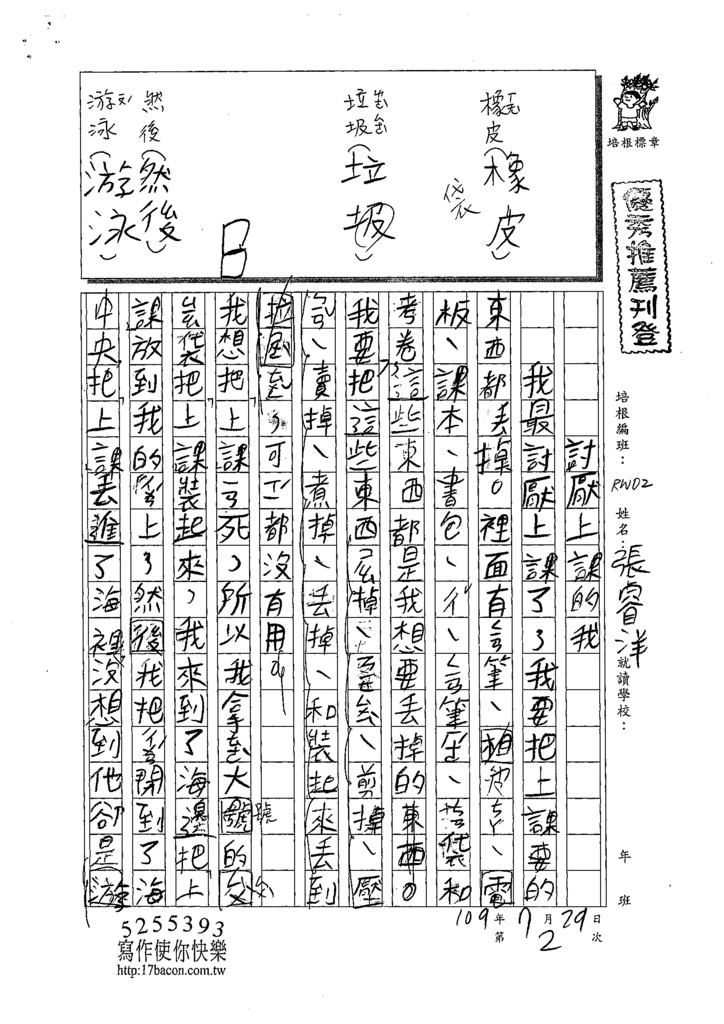 討厭上課的我
我最討厭上課了,我要把上課要的
東西都丟掉。裡面有ㄑㄧㄢ筆、橡皮ㄘㄚ、電
板、課本、書包、尺、ㄑㄧㄢ筆盒、袋和
考卷這些東西都是我想要丟掉的東西。
我要把這些東西丟掉、剪掉、壓
賣掉、煮掉、丟掉、和裝起來丟到
垃圾可都沒有用
我想把上課ㄏㄞ死,所以我拿ㄌㄜ大號的
袋把上課裝起來,我來到了海邊把上
課放到我的上,然後我把開到了海
中央把上課丟進了海裡沒想到他卻是游
橡皮
橡皮
袋
垃圾
垃圾
然後
然後
游泳
游泳
優秀推薦刊登
培根標章
培根編班:RW02
姓名:張睿洋
就讀學校:
年 班
109年7月29日
第2次
5255393
寫作使你快樂
http:17bacon.com.tw